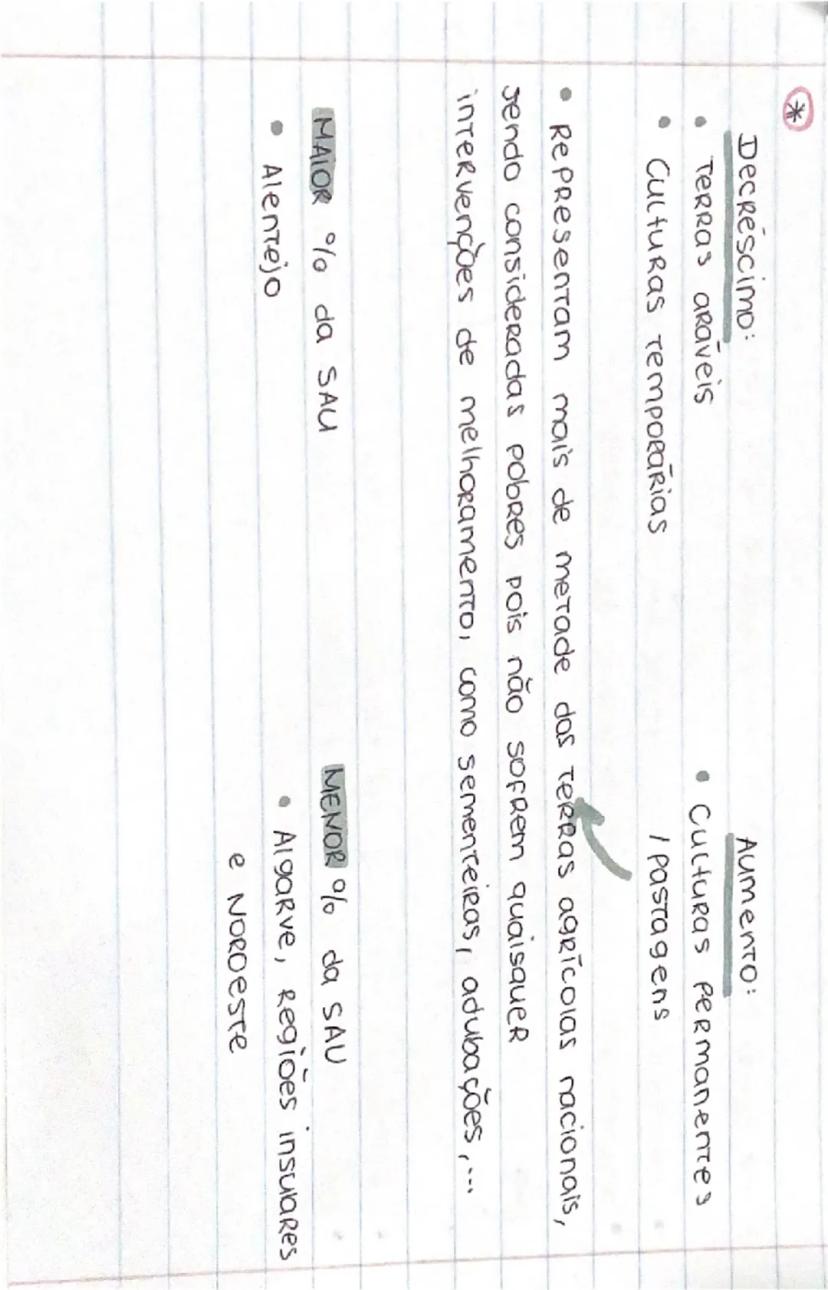 *
Decréscimo: Aumento:
• Terras aráveis • Culturas permanentes
• Culturas temporárias / pastagens
• Representam mais de metade das terras agrícolas nacionais,
sendo consideradas pobres pois não sofrem quaisquer
intervenções de melhoramento, como sementeiras, adubações,...
MAIOR % da SAU MENOR % da SAU
• Alentejo • Algarve, regiões insulares
e Noroeste